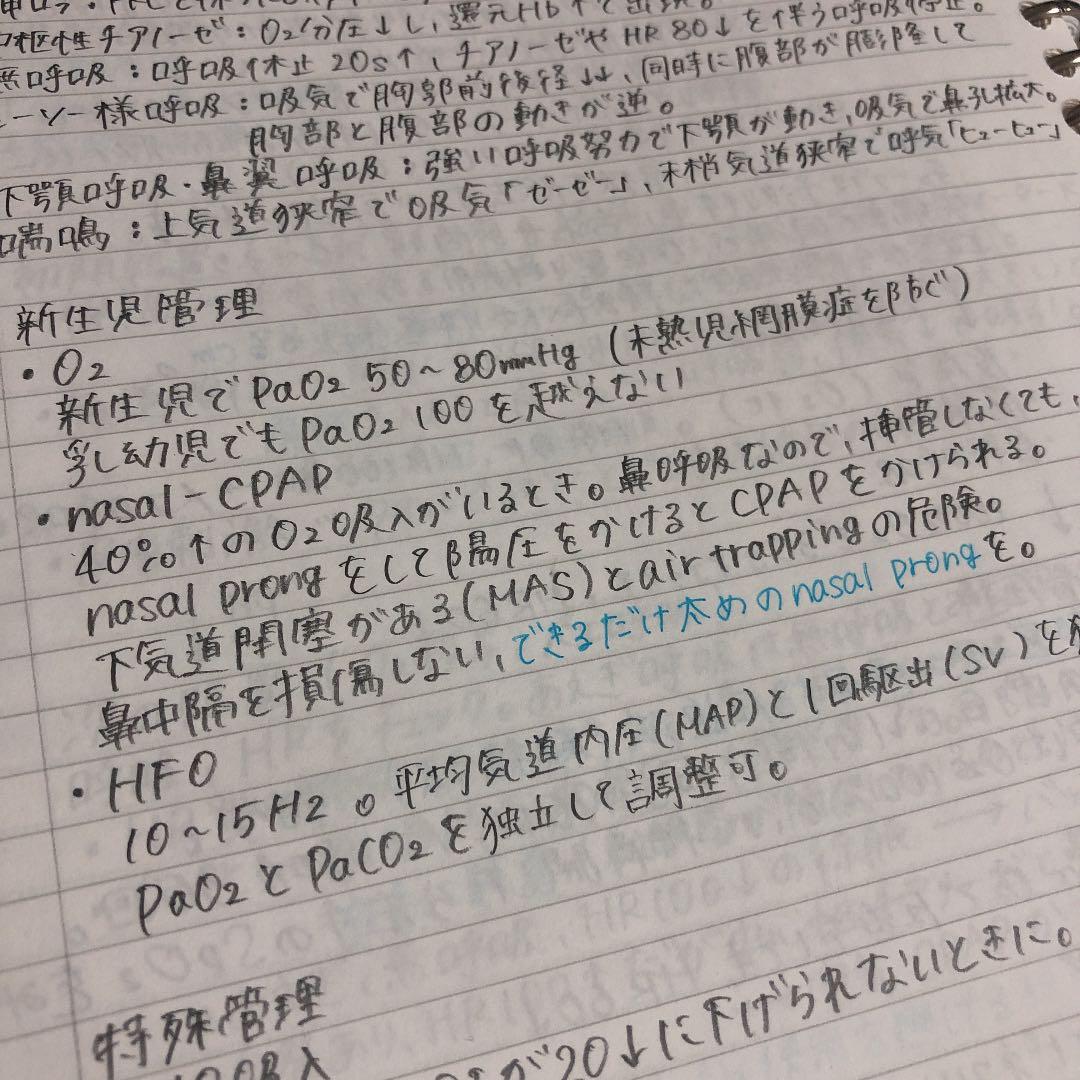 中枢性チアノーゼ：O2分圧↓し、還元Hb↑で出現。
無呼吸：呼吸休止20s↑、チアノーゼや HR 80↓を伴う呼吸停止。
ーソー様呼吸：吸気で胸郭前後径↓↓、同時に腹部が膨隆して
胸部と腹部の動きが逆。
下顎呼吸・鼻翼呼吸：強い呼吸努力で下顎が動き、吸気で鼻孔拡大。
喘鳴：上気道狭窄で吸気「ゼーゼー」、末梢気道狭窄で呼気「ヒューヒュー」
新生児管理
・O2
新生児でPaO2 50～80mmHg（未熟児網膜症を防ぐ）
乳幼児でもPaO2 100を越えない
・nasal-CPAP
40%↑のO2吸入がいるとき。鼻呼吸なので、挿管しなくても、
nasal prongをして陽圧をかけるとCPAPをかけられる。
下気道閉塞がある(MAS)とair trappingの危険。
鼻中隔を損傷しない、できるだけ太めのnasal prongを。
・HFO
10～15Hz。平均気道内圧(MAP)と1回駆出(SV)を
PaO2とPaCO2を独立して調整可。
特殊管理
が20↓に下げられないときに。